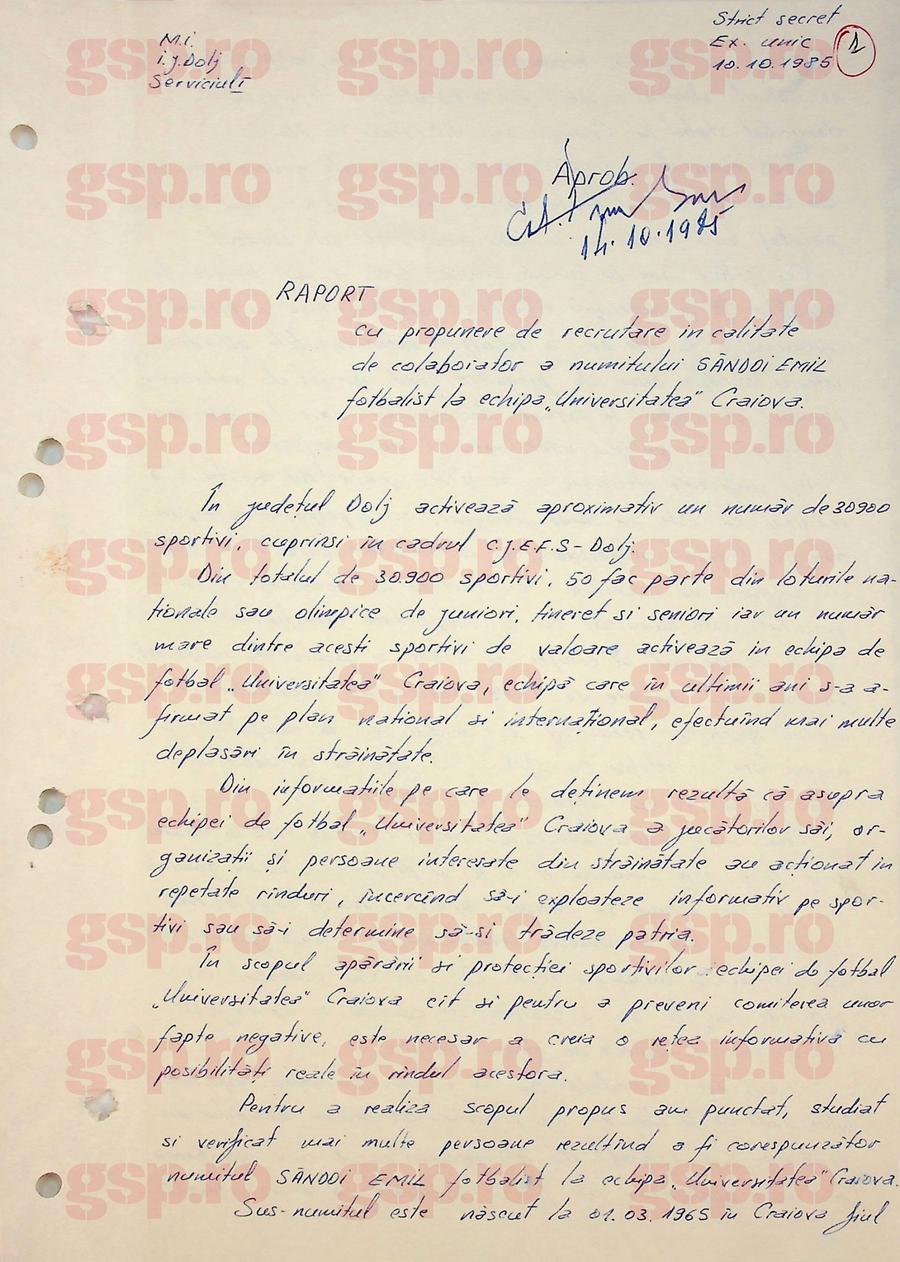 Strict secret
M.I. Ex. unic 1
I.J. Dolj 10.10.1985
Serviciul I
Aprob.
14.10.1985
RAPORT
cu propunere de recrutare in calitate
de colaborator a numitului SĂNDOI EMIL
fotbalist la echipa „Universitatea" Craiova.
În județul Dolj activează aproximativ un număr de 30900
sportivi, cuprinsi în cadrul C.J.E.F.S - Dolj.
Din totalul de 30.900 sportivi, 50 fac parte din loturile na-
ționale sau olimpice de juniori, tineret si seniori iar un număr
mare dintre acesti sportivi de valoare activează in echipa de
fotbal „Universitatea" Craiova, echipă care în ultimii ani s-a a-
firmat pe plan national si internațional, efectuînd mai multe
deplasări în străinătate.
Din informatiile pe care le deținem rezultă că asupra
echipei de fotbal „Universitatea" Craiova a jucătorilor săi, or-
ganizații și persoane interesate din străinătate au acționat in
repetate rînduri, încercînd să-i exploateze informativ pe spor-
tivi sau să-i determine să-si trădeze patria.
În scopul apărării si protectiei sportivilor echipei de fotbal
„Universitatea" Craiova cît si pentru a preveni comiterea unor
fapte negative, este necesar a creia o rețea informativă cu
posibilități reale în rîndul acestora.
Pentru a realiza scopul propus am punctat, studiat
si verificat mai multe persoane rezultînd a fi corespunzător
numitul SĂNDOI EMIL fotbalist la echipa „Universitatea" Craiova.
Sus-numitul este născut la 01.03.1965 în Craiova fiul